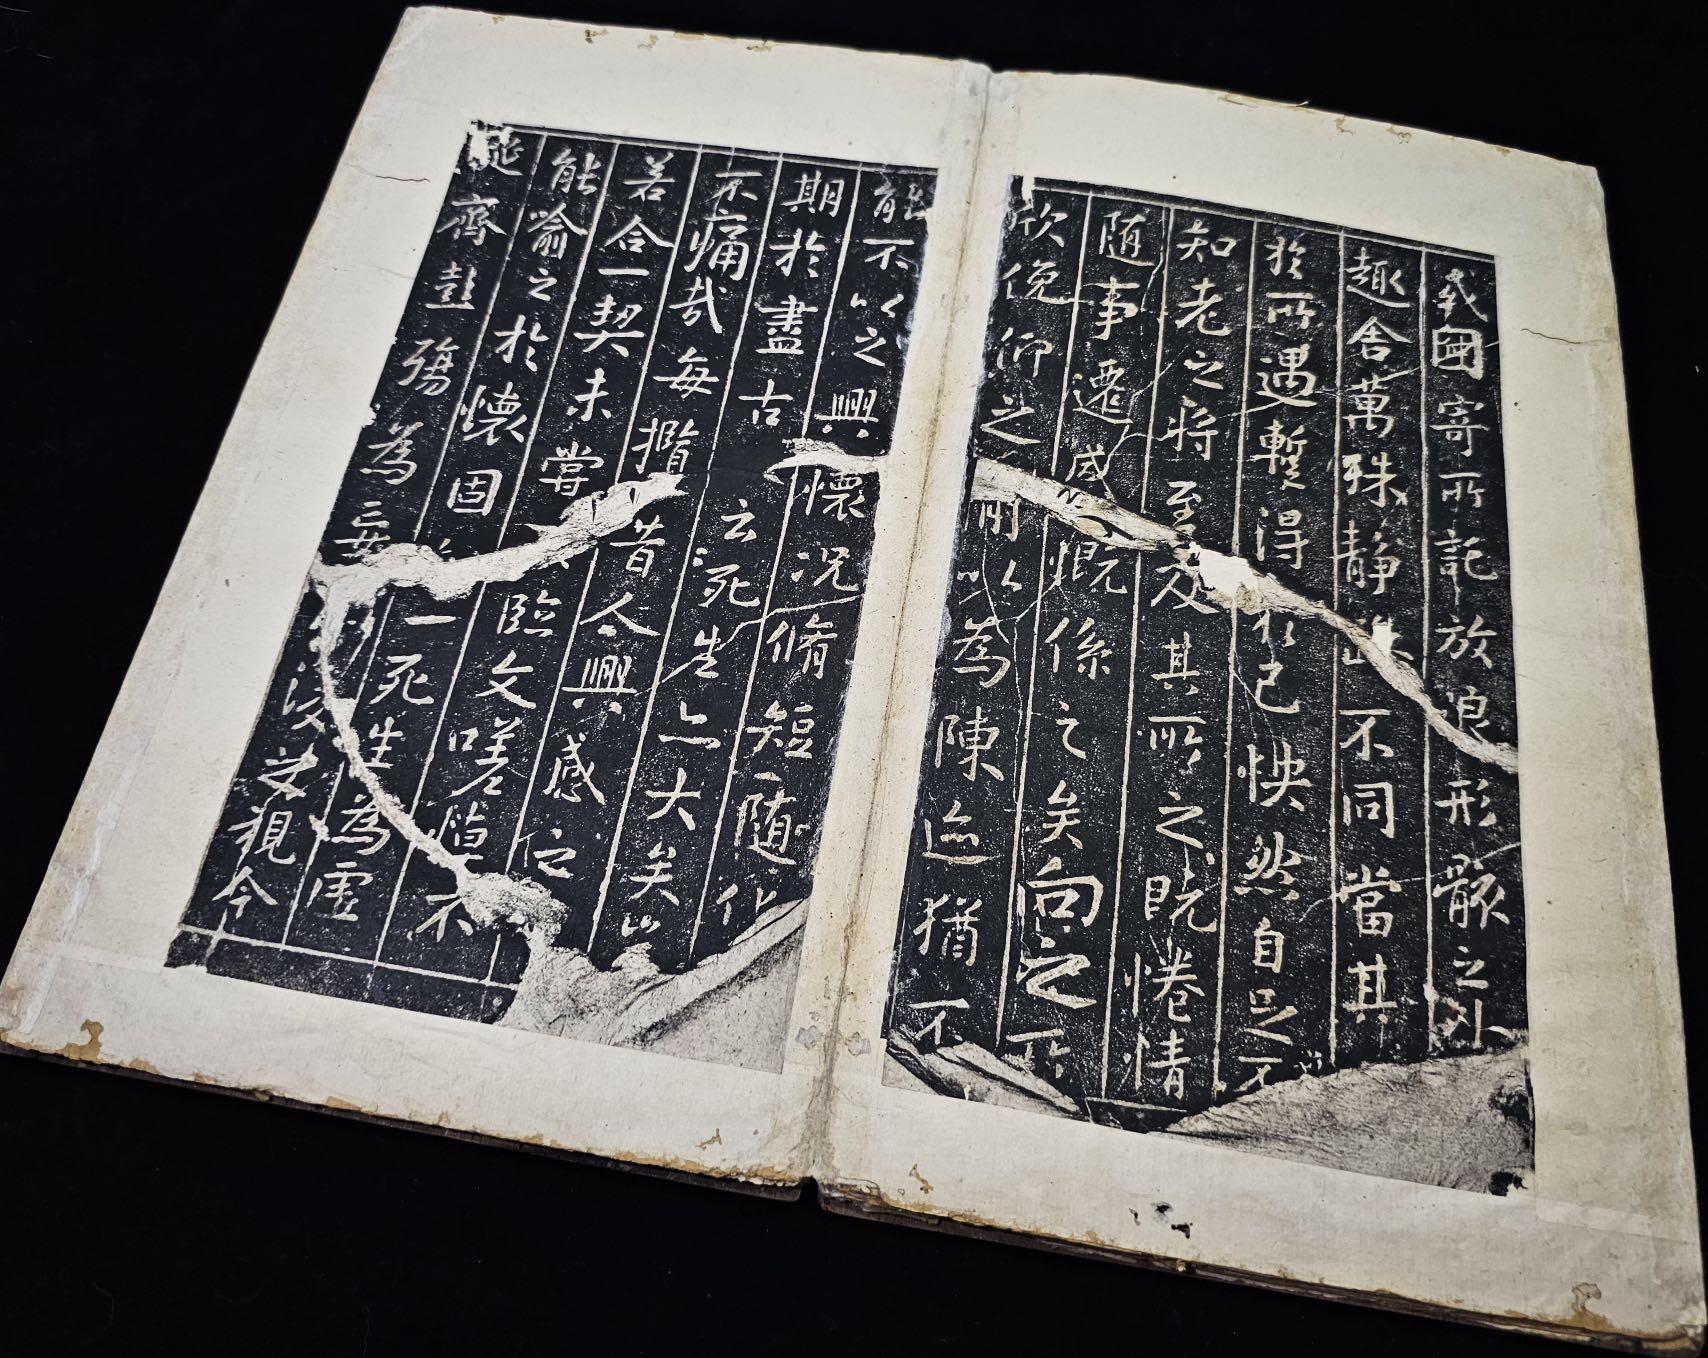 或因寄所託放浪形骸之外
趣舍萬殊靜躁不同當其
於所遇暫得於己怏然自足不
知老之將至及其所之既惓情
隨事遷感慨係之矣向之所
欣俛仰之以為陳迹猶不
能不以之興懷況脩短隨化
期於盡古云死生亦大矣
不痛哉每攬昔人興感之
若合一契未嘗臨文嗟悼不
能喻之於懷固一死生為虛
誕齊彭殤為妄後之視今